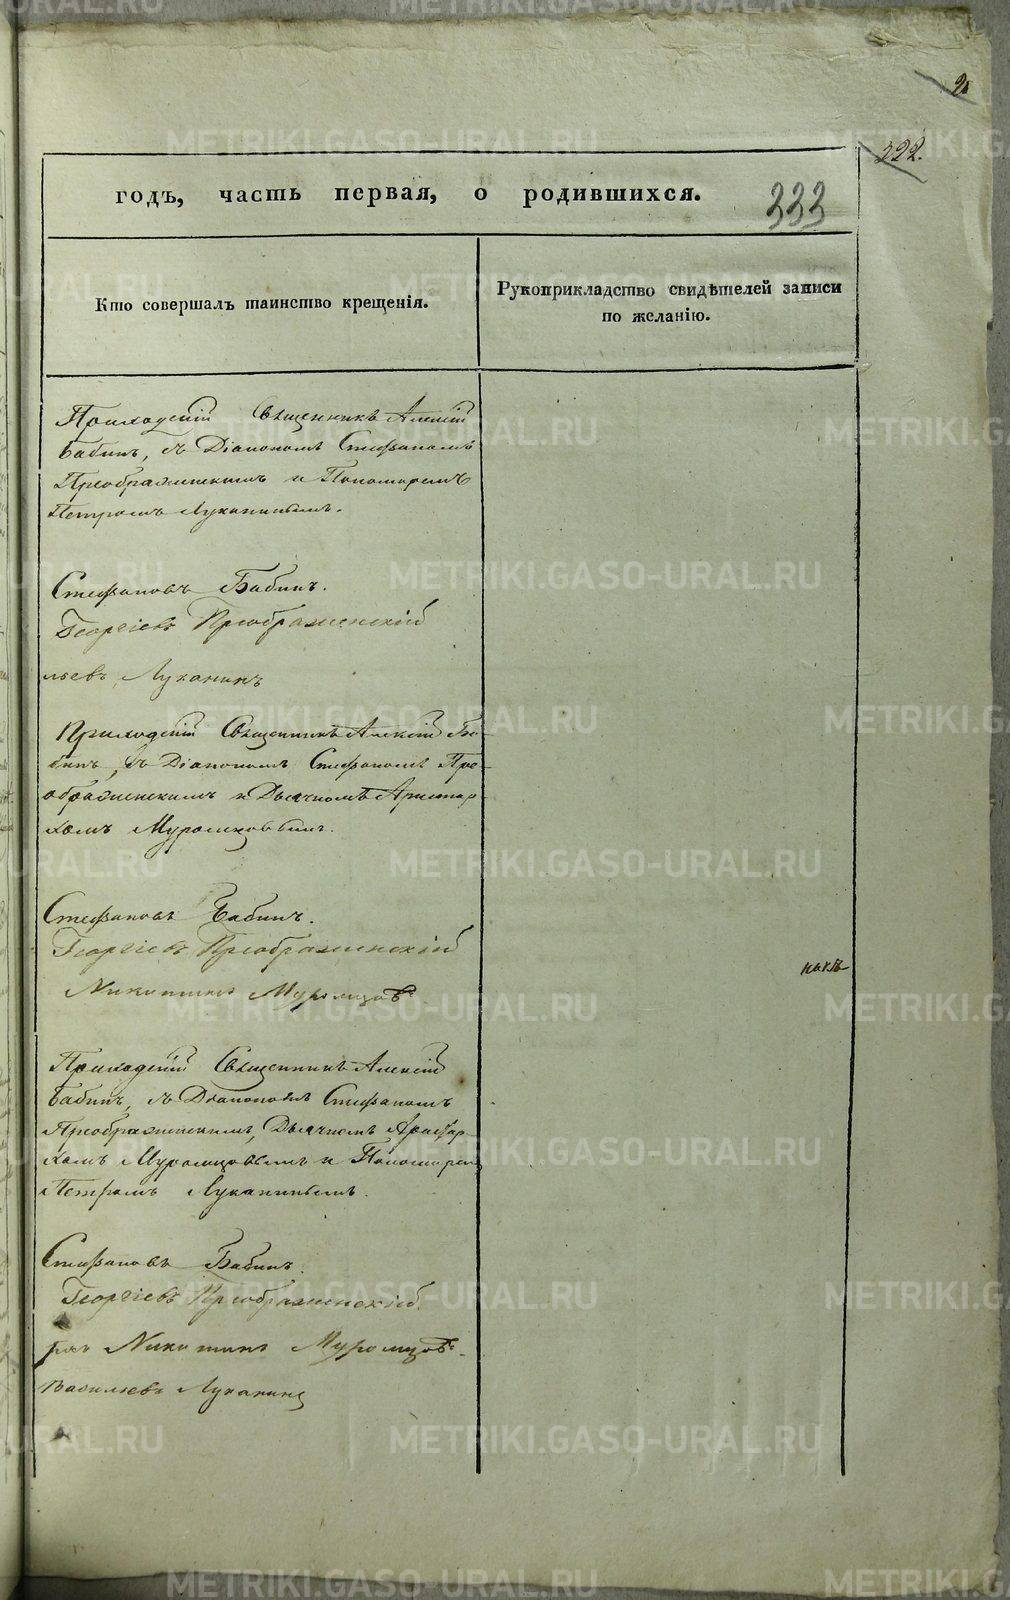 2
322.
годъ, часть первая, о родившихся.
333
Кто совершалъ таинство крещенія.
Рукоприкладство свидѣтелей записи
по желанію.
Приходскій Священникъ Алексій
Бабинъ, съ Діакономъ Стефаномъ
Преображенскимъ и Пономаремъ
Петромъ Луканинымъ.
Стефановъ Бабинъ.
Георгіевъ Преображенскій
льевъ Луканинъ
Приходскій Священникъ Алексій Ба-
бинъ, съ Діакономъ Стефаномъ Пре-
ображенскимъ и Дьячкомъ Аристар-
хомъ Муромцовымъ.
Стефановъ Бабинъ.
Георгіевъ Преображенскій
Никитинъ Муромцовъ
Приходскій Священникъ Алексій
Бабинъ, съ Діакономъ Стефаномъ
Преображенскимъ, Дьячкомъ Аристар-
хомъ Муромцовымъ и Пономаремъ
Петромъ Луканинымъ.
Стефановъ Бабинъ.
Георгіевъ Преображенскій
рхъ Никитинъ Муромцовъ
Васильевъ Луканинъ
METRIKI.GASO-URAL.RU